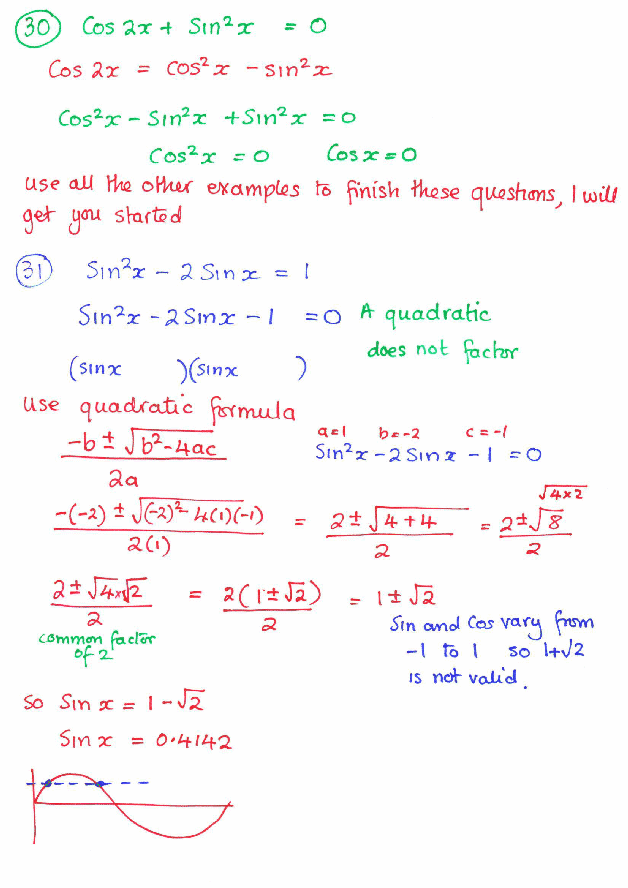 30 Cos 2x + Sin²x = 0
Cos 2x = cos²x - sin²x
Cos²x - Sin²x + Sin²x = 0
Cos²x = 0 Cos x = 0
Use all the other examples to finish these questions, I will
get you started
31 Sin²x - 2 Sin x = 1
Sin²x - 2 Sin x - 1 = 0 A quadratic
does not factor
(sin x )(sin x )
Use quadratic formula
(-b ± √(b² - 4ac)) / 2a
a=1 b=-2 c=-1
Sin²x - 2 Sin x - 1 = 0
(-(-2) ± √((-2)² - 4(1)(-1))) / 2(1) = (2 ± √(4+4)) / 2 = (2 ± √8) / 2
√4×2
(2 ± √4×√2) / 2 = 2(1 ± √2) / 2 = 1 ± √2
common factor
of 2
Sin and Cos vary from
-1 to 1 so 1+√2
is not valid.
So Sin x = 1 - √2
Sin x = 0.4142